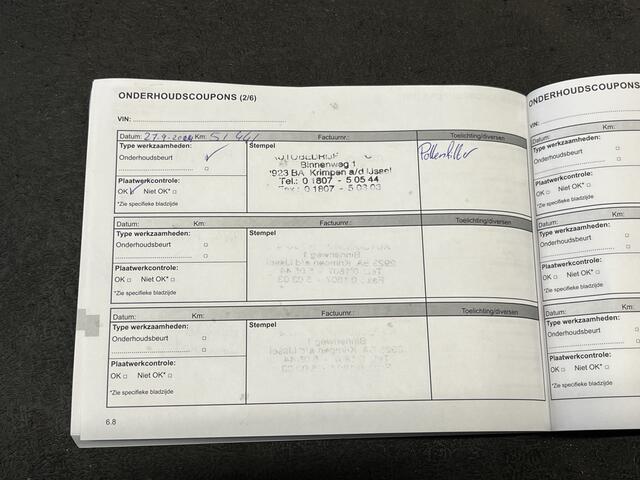 ONDERHOUDSCOUPONS (2/6)
VIN:
Datum: 27.9.2024 Km: 51 441 Factuurnr.: Toelichting/diversen
Type werkzaamheden: Stempel Pollenfilter
Onderhoudsbeurt
AUTOBEDRIJF
Binnenweg 1
2923 BA Krimpen a/d IJssel
Tel.: 0 1807 - 5 05 44
Fax.: 0 1807 - 5 03 03
Plaatwerkcontrole:
OK Niet OK*
*Zie specifieke bladzijde
Datum: Km: Factuurnr.: Toelichting/diversen
Type werkzaamheden: Stempel
Onderhoudsbeurt
Plaatwerkcontrole:
OK Niet OK*
*Zie specifieke bladzijde
Datum: Km: Factuurnr.: Toelichting/diversen
Type werkzaamheden: Stempel
Onderhoudsbeurt
Plaatwerkcontrole:
OK Niet OK*
*Zie specifieke bladzijde
6.8
ONDERHOUDSCOUPONS
VIN:
Datum:
Type werkzaamheden:
Onderhoudsbeurt
Plaatwerkcontrole:
OK Niet OK*
*Zie specifieke bladzijde
Datum:
Type werkzaamheden:
Onderhoudsbeurt
Plaatwerkcontrole:
OK Niet OK*
*Zie specifieke bladzijde
Datum:
Type werkzaamheden:
Onderhoudsbeurt
Plaatwerkcontrole:
OK Niet OK*
*Zie specifieke bladzijde